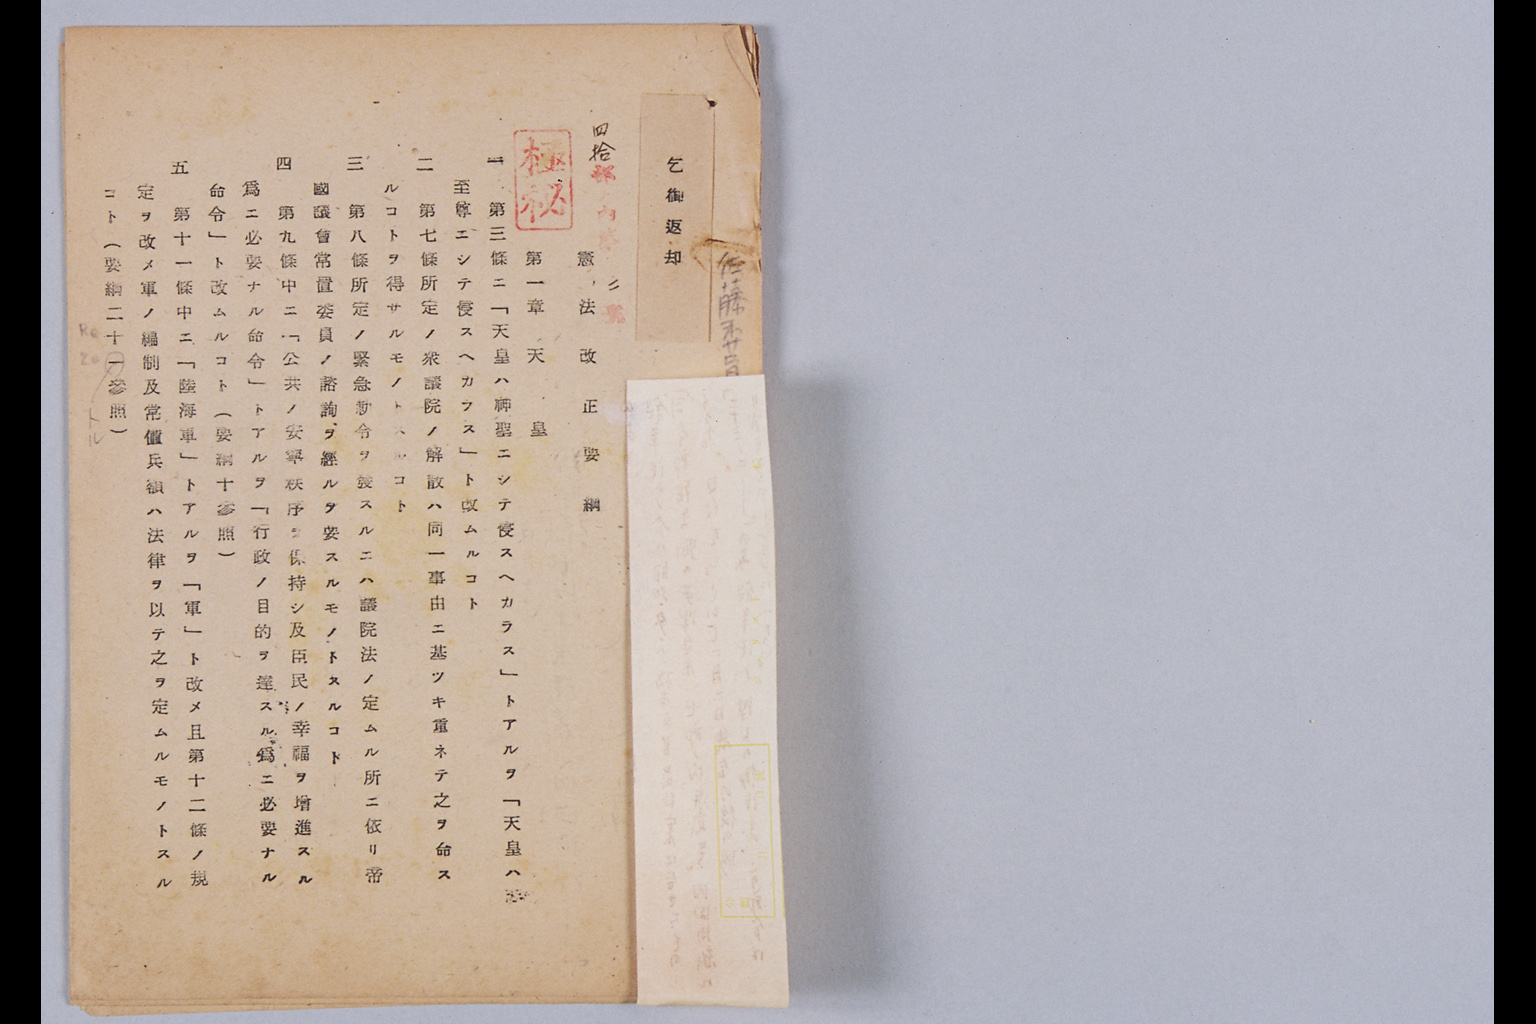 乞御返却
佐藤
四拾部ノ内第二號
極秘
憲法改正要綱
第一章 天皇
一 第三條ニ「天皇ハ神聖ニシテ侵スヘカラス」トアルヲ「天皇ハ
至尊ニシテ侵スヘカラス」ト改ムルコト
二 第七條所定ノ衆議院ノ解散ハ同一事由ニ基ツキ重ネテ之ヲ命ス
ルコトヲ得サルモノトスルコト
三 第八條所定ノ緊急勅令ヲ發スルニハ議院法ノ定ムル所ニ依リ帝
國議會常置委員ノ諮詢ヲ經ルヲ要スルモノトスルコト
四 第九條中ニ「公共ノ安寧秩序ヲ保持シ及臣民ノ幸福ヲ增進スル
爲ニ必要ナル命令」トアルヲ「行政ノ目的ヲ達スル爲ニ必要ナル
命令」ト改ムルコト（要綱十參照）
五 第十一條中ニ「陸海軍」トアルヲ「軍」ト改メ且第十二條ノ規
定ヲ改メ軍ノ編制及常備兵額ハ法律ヲ以テ之ヲ定ムルモノトスル
コト（要綱二十一參照）
トル